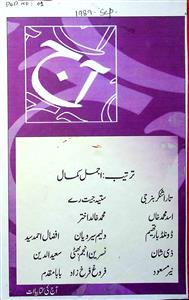 1989 - Sep.
آج
ترتیب: اجمل کمال
تارا شنکر بنرجی
ستیہ جیت رے
اسد محمد خاں
محمد خالد اختر
ڈونلڈ بارتھیم
ولیم سرویان
افضال احمد سید
ذی شان
نسرین انجم بھٹی
سعید الدین
نیر مسعود
فروغ فرخ زاد
بابا مقدم
آج کی کتابیات